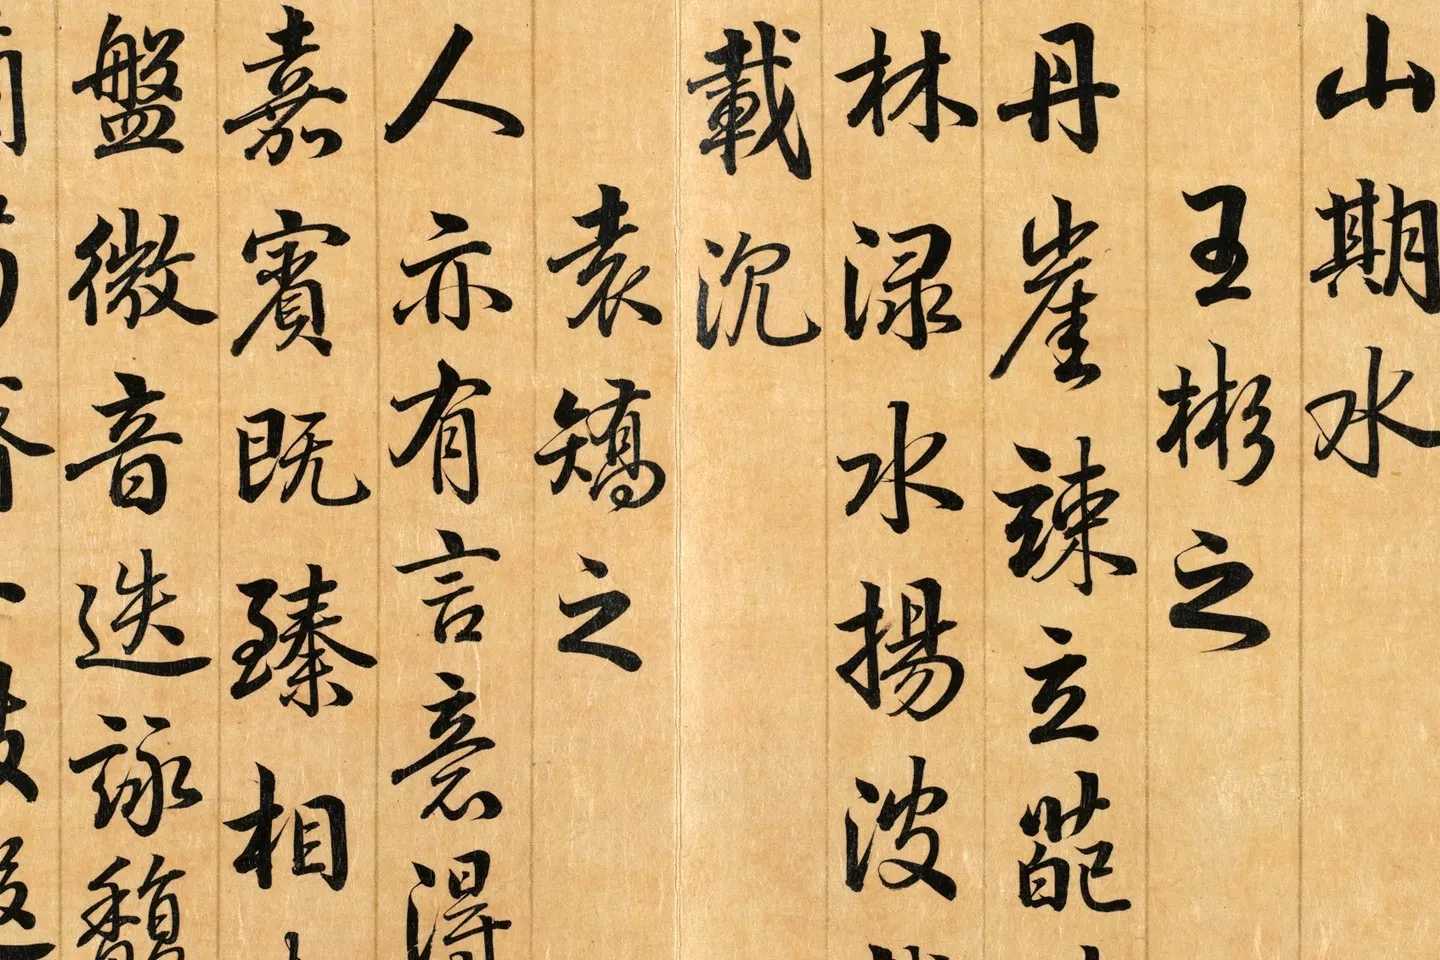 山期水
王彬之
丹崖竦立葩
林渌水揚波
載沉
袁矯之
人亦有言意得
嘉賓既臻相
盤微音迭詠馥